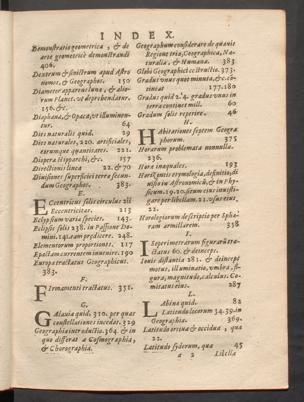 INDEX.
Demonstratio geometrica, & de
arte geometricè demonstrandi
406.
Dextrum & sinistrum apud Astro
nomos, & Geographos. 150
Diameter apparens lunæ, & alio-
rum Planet. vt deprehendatur.
156. &c.
Diaphana, & Opaca, vt illuminen-
tur. 64
Dies naturalis quid. 29
Dies naturales, 220. artificiales,
earumque quantitates. 221
Dioptra Hipparchi, &c. 157
Directionis linea 22. & 70
Diuisiones superficiei terræ secun-
dum Geographos. 383.
E.
Eccentricus solis circulus 211
Eccentricitas. 213
Eclypsium varia species. 143.
Eclipsis solis 238. in Passione Do-
mini. 141. eam prædicere. 248.
Elementorum proportiones. 117
Epactam currentem inuenire. 190
Europa tractatus Geographicus.
383.
F.
Firmamenti tractatus. 351.
G.
Galaxia quid. 310. per quas
constellationes incedat. 329
Geographia introductio. 364. & in
quo differat à Cosmographia,
& Chorographia.
Geographum considerare de quauis
Regione tria, Geographica, Na-
turalia, & Humana. 383
Globi Geographici constructio. 373.
Gradus vnus quot minuta, & c. cō-
tineat 177.180
Gradus quid 2. 4. gradus vnus in
terra contineat mill. 60
Gradum solis reperire. 46
H
Habitationes septem Geogra
phorum. 375
Horarum problemata nonnulla.
236.
Horæ inæquales. 193
Horizontis etymologia, definitio, di
uisio in Astronomicū, & in Phy-
sicum. 19.20. sirum eius inuesti-
gare per libellam. 21. vsus eius,
22.
Horologiorum descriptio per Sphæ-
ram armillarem. 358
I.
Isoperimetrarum figurarū tra-
ctatus 60. & deinceps.
Iouis distantia 281. & deincept
motus, illuminatio, vmbra, fi-
gura, magnitudo, calculus. Co-
mitatus eius. 287
L.
Labina quid. 82
Latitudo locorum 34.39. in
Geographia. 369.
Latitudo ortiua & occidua, qua
22.
Latitudo syderum, qua 45
a 2 Libella